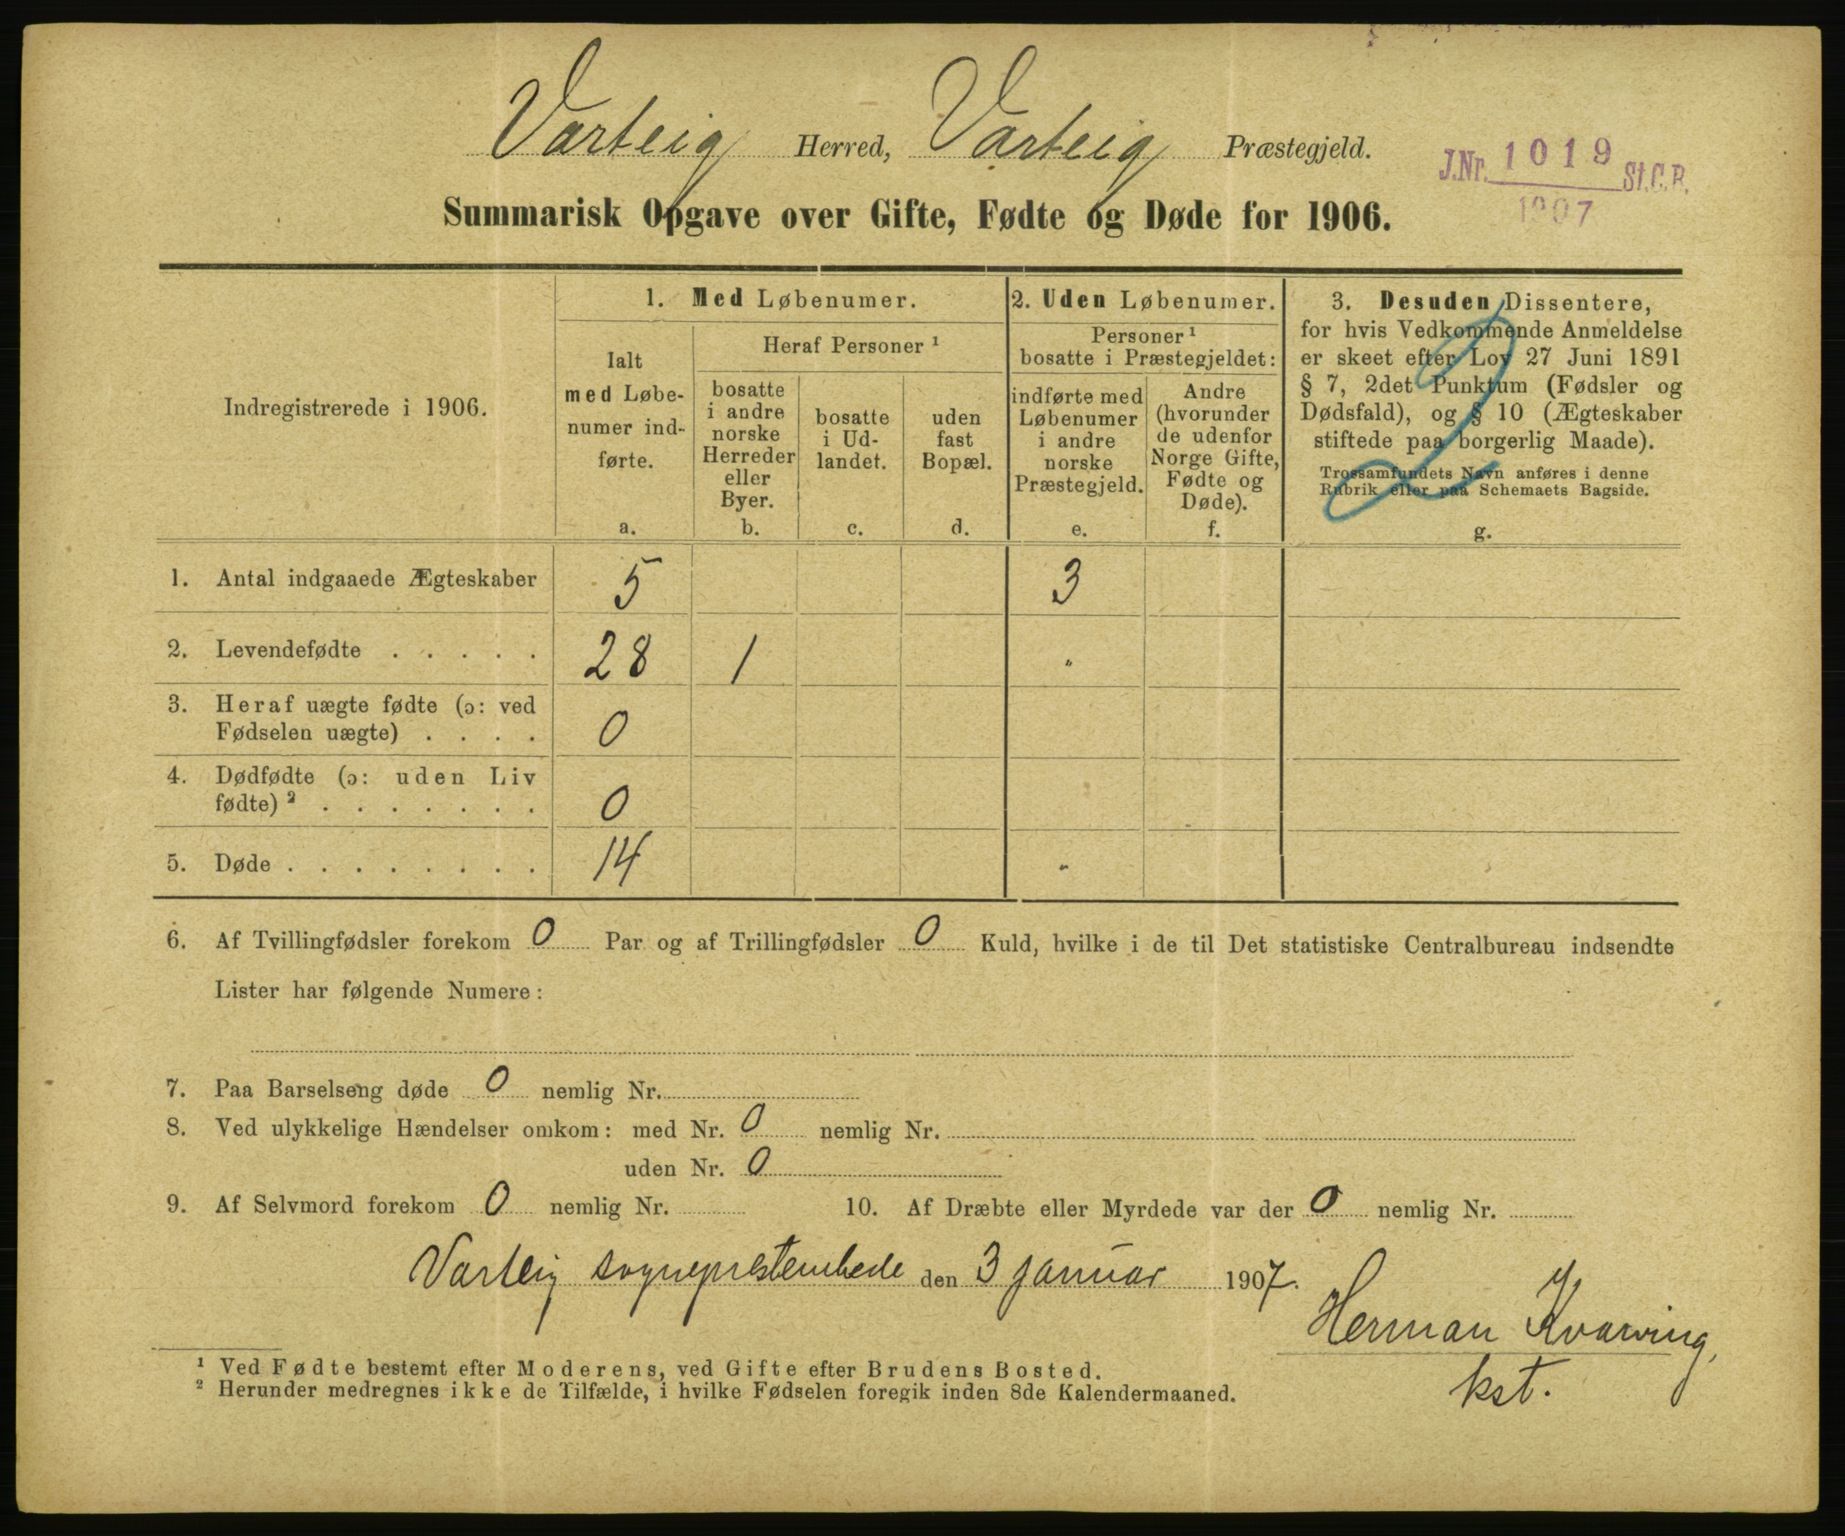 Varteig Herred, Varteig Præstegjeld.
J.Nr. 1019 St.C.B.
1907
Summarisk Opgave over Gifte, Fødte og Døde for 1906.
Indregistrerede i 1906.
1. Med Løbenumer.
Ialt
med Løbe-
numer ind-
førte.
a.
Heraf Personer ¹
bosatte
i andre
norske
Herreder
eller
Byer.
b.
bosatte
i Ud-
landet.
c.
uden
fast
Bopæl.
d.
2. Uden Løbenumer.
Personer ¹
bosatte i Præstegjeldet:
indførte med
Løbenumer
i andre
norske
Præstegjeld.
e.
Andre
(hvorunder
de udenfor
Norge Gifte,
Fødte og
Døde).
f.
3. Desuden Dissentere,
for hvis Vedkommende Anmeldelse
er skeet efter Lov 27 Juni 1891
§ 7, 2det Punktum (Fødsler og
Dødsfald), og § 10 (Ægteskaber
stiftede paa borgerlig Maade).
Trossamfundets Navn anføres i denne
Rubrik eller paa Schemaets Bagside.
g.
1. Antal indgaaede Ægteskaber 5 3
2. Levendefødte . . . . . 28 1 "
3. Heraf uægte fødte (ɔ: ved
Fødselen uægte) . . . . 0
4. Dødfødte (ɔ: uden Liv
fødte) ² . . . . . . . 0
5. Døde . . . . . . . . 14 "
6. Af Tvillingfødsler forekom 0 Par og af Trillingfødsler 0 Kuld, hvilke i de til Det statistiske Centralbureau indsendte
Lister har følgende Numere:
7. Paa Barselseng døde 0 nemlig Nr.
8. Ved ulykkelige Hændelser omkom: med Nr. 0 nemlig Nr.
uden Nr. 0
9. Af Selvmord forekom 0 nemlig Nr. 10. Af Dræbte eller Myrdede var der 0 nemlig Nr.
Varteig sogneprestembede den 3 januar 1907.
Herman Kvarving,
kst.
¹ Ved Fødte bestemt efter Moderens, ved Gifte efter Brudens Bosted.
² Herunder medregnes ikke de Tilfælde, i hvilke Fødselen foregik inden 8de Kalendermaaned.